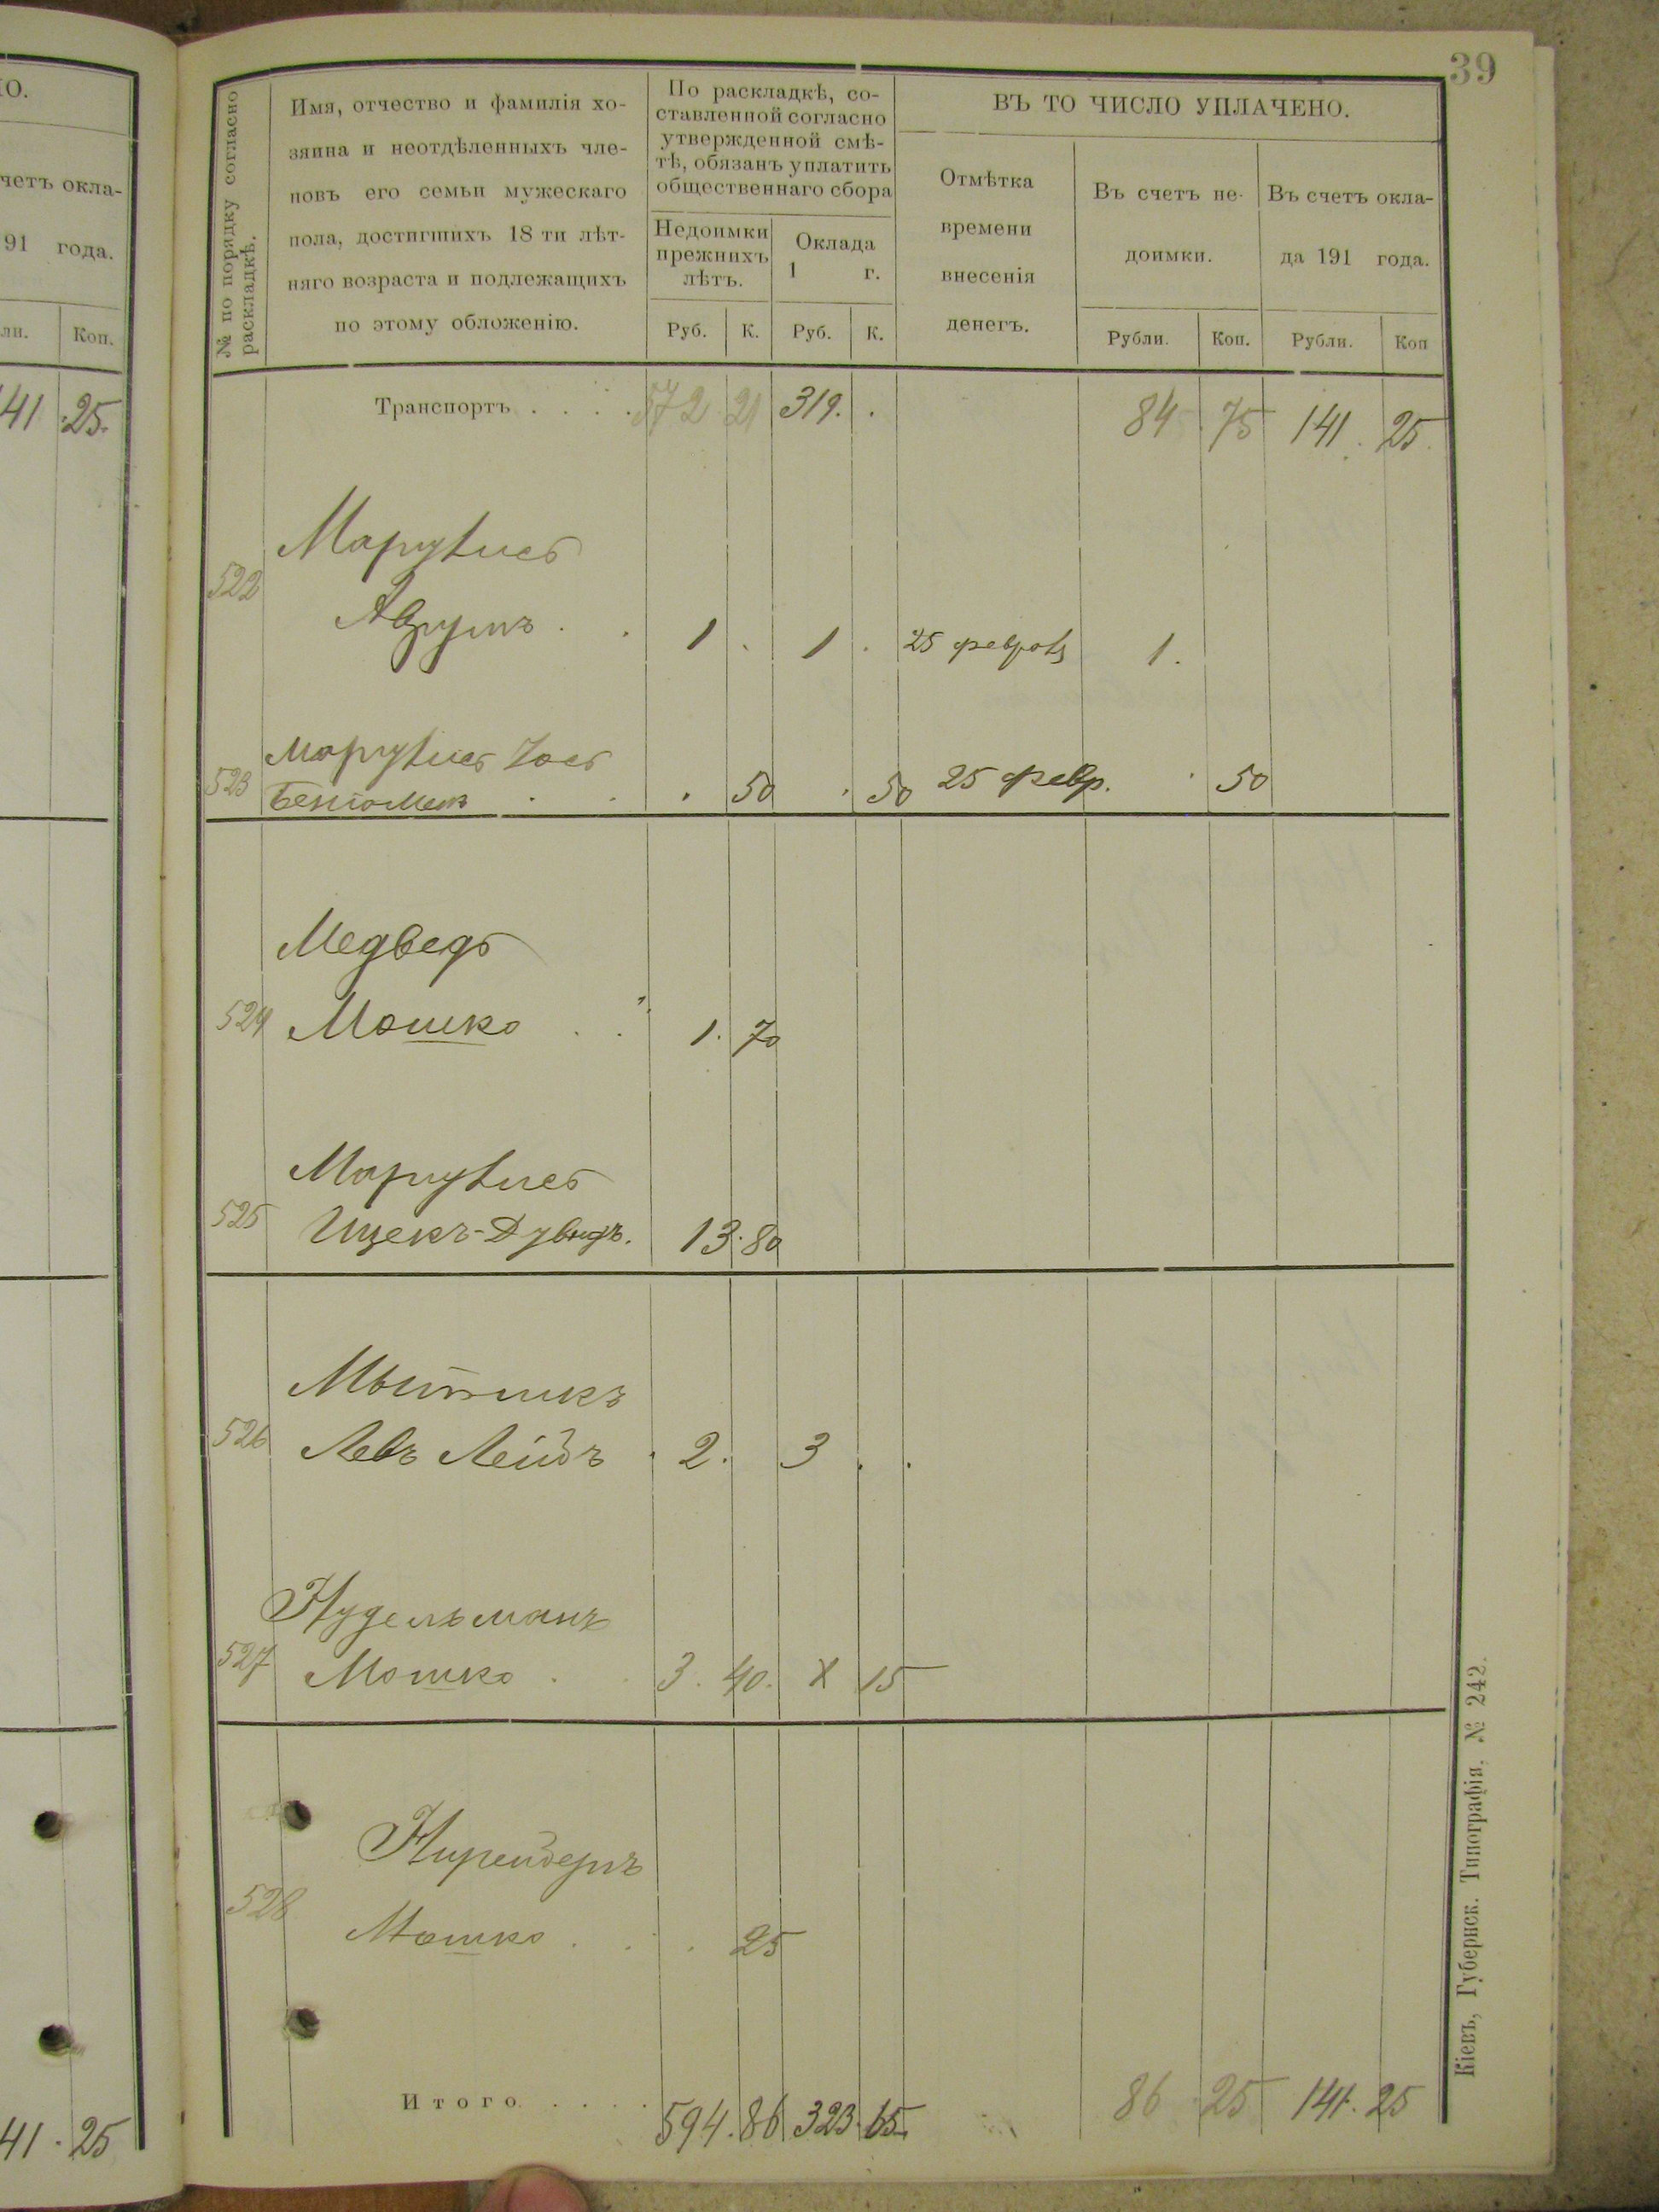 39
О.
четъ окла-
91 года.
ли. Коп.
41 25.
41. 25
№ по порядку согласно раскладкѣ.
Имя, отчество и фамилія хо-
зяина и неотдѣленныхъ чле-
новъ его семьи мужескаго
пола, достигшихъ 18 ти лѣт-
няго возраста и подлежащихъ
по этому обложенію.
По раскладкѣ, со-
ставленной согласно
утвержденной смѣ-
тѣ, обязанъ уплатить
общественнаго сбора
Недоимки
прежнихъ
лѣтъ.
Оклада
1 г.
Руб. К. Руб. К.
ВЪ ТО ЧИСЛО УПЛАЧЕНО.
Отмѣтка
времени
внесенія
денегъ.
Въ счетъ не-
доимки.
Въ счетъ окла-
да 191 года.
Рубли. Коп. Рубли. Коп
Транспортъ . . . . 572 21 319. . 84 75 141. 25.
Марулисъ
522
Аврумъ . . 1 . 1 . 25 1.
Марулисъ
523 . . . 50 . 50 25 февр. . 50
Медведь
524 Мошко . . 1. 70
Марулисъ
525 Ицекъ-Дувидъ. 13. 80
526 Левъ Лейбъ . 2. 3 . .
Нудельманъ
527 Мошко . . 3. 40. X 15
528
Мошко . . . 25
Итого . . . . 594. 86 323. 65. 86 25 141. 25
Кіевъ, Губернск. Типографія. № 242.